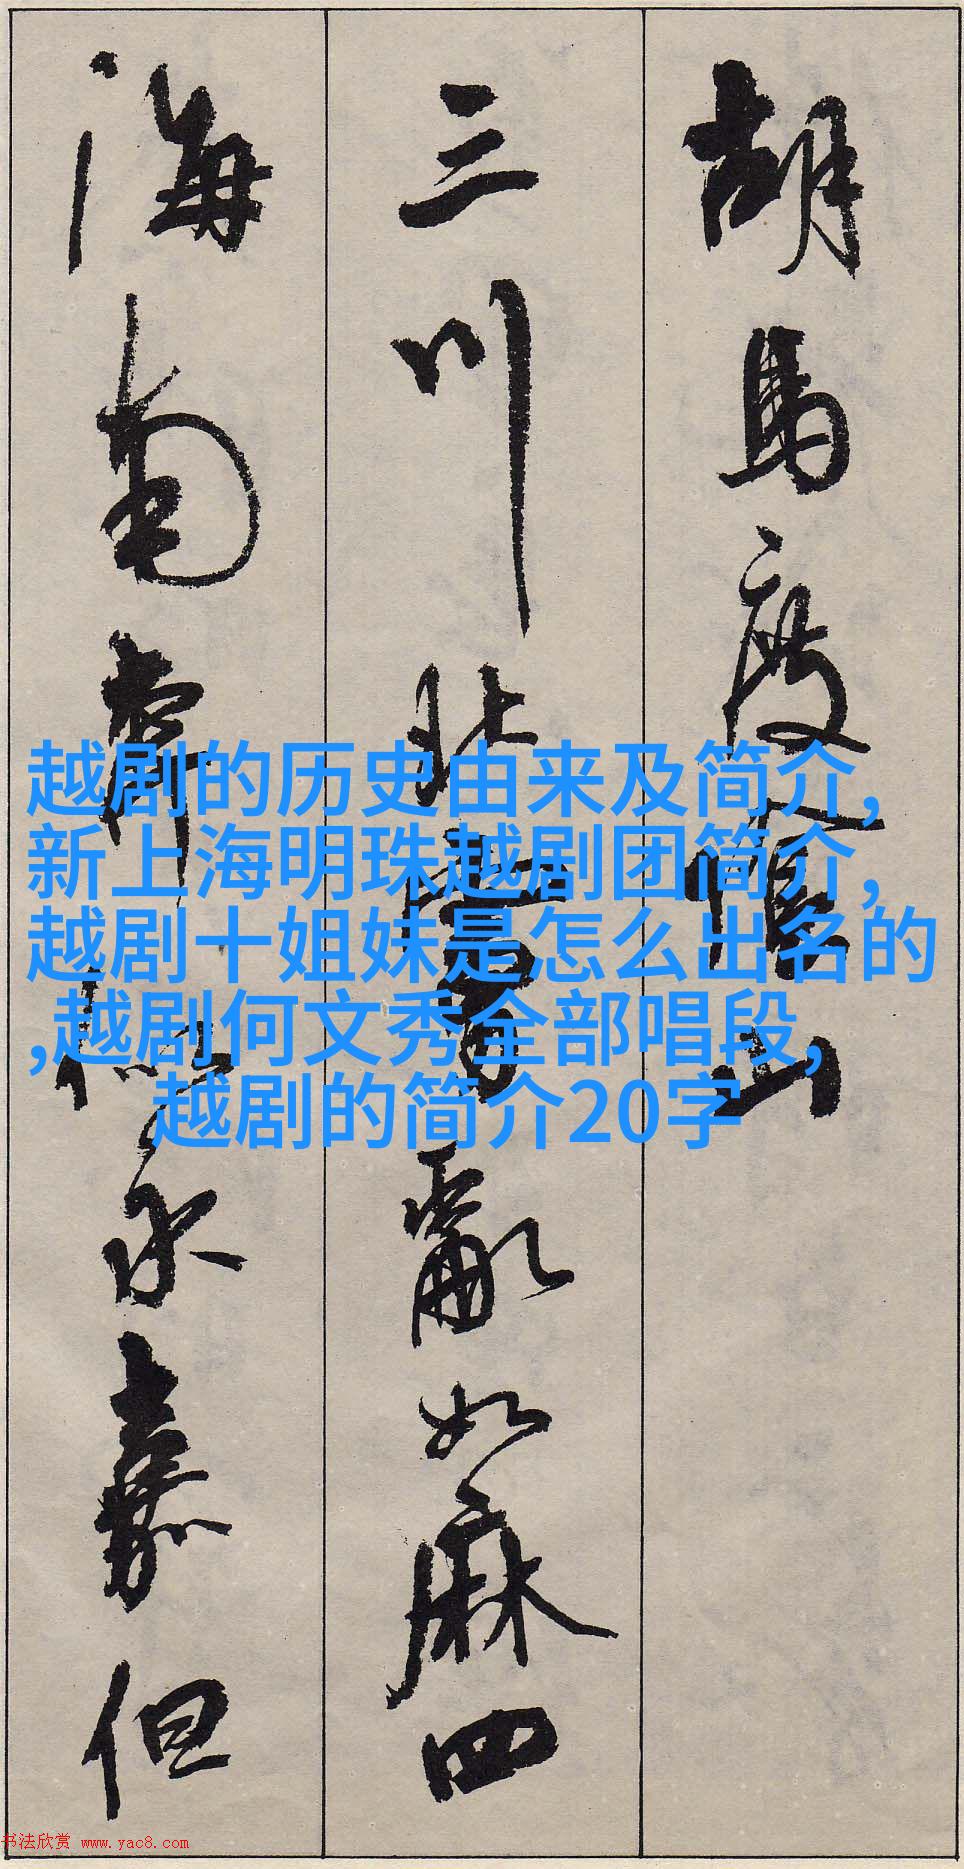 胡馬度陰山
三川北虜亂如麻四
海南奔似永嘉但
越剧的历史由来及简介,
新上海明珠越剧团简介,
越剧十姐妹是怎么出名的
,越剧何文秀全部唱段,
越剧的简介20字
书法欣赏 www.yac8.com